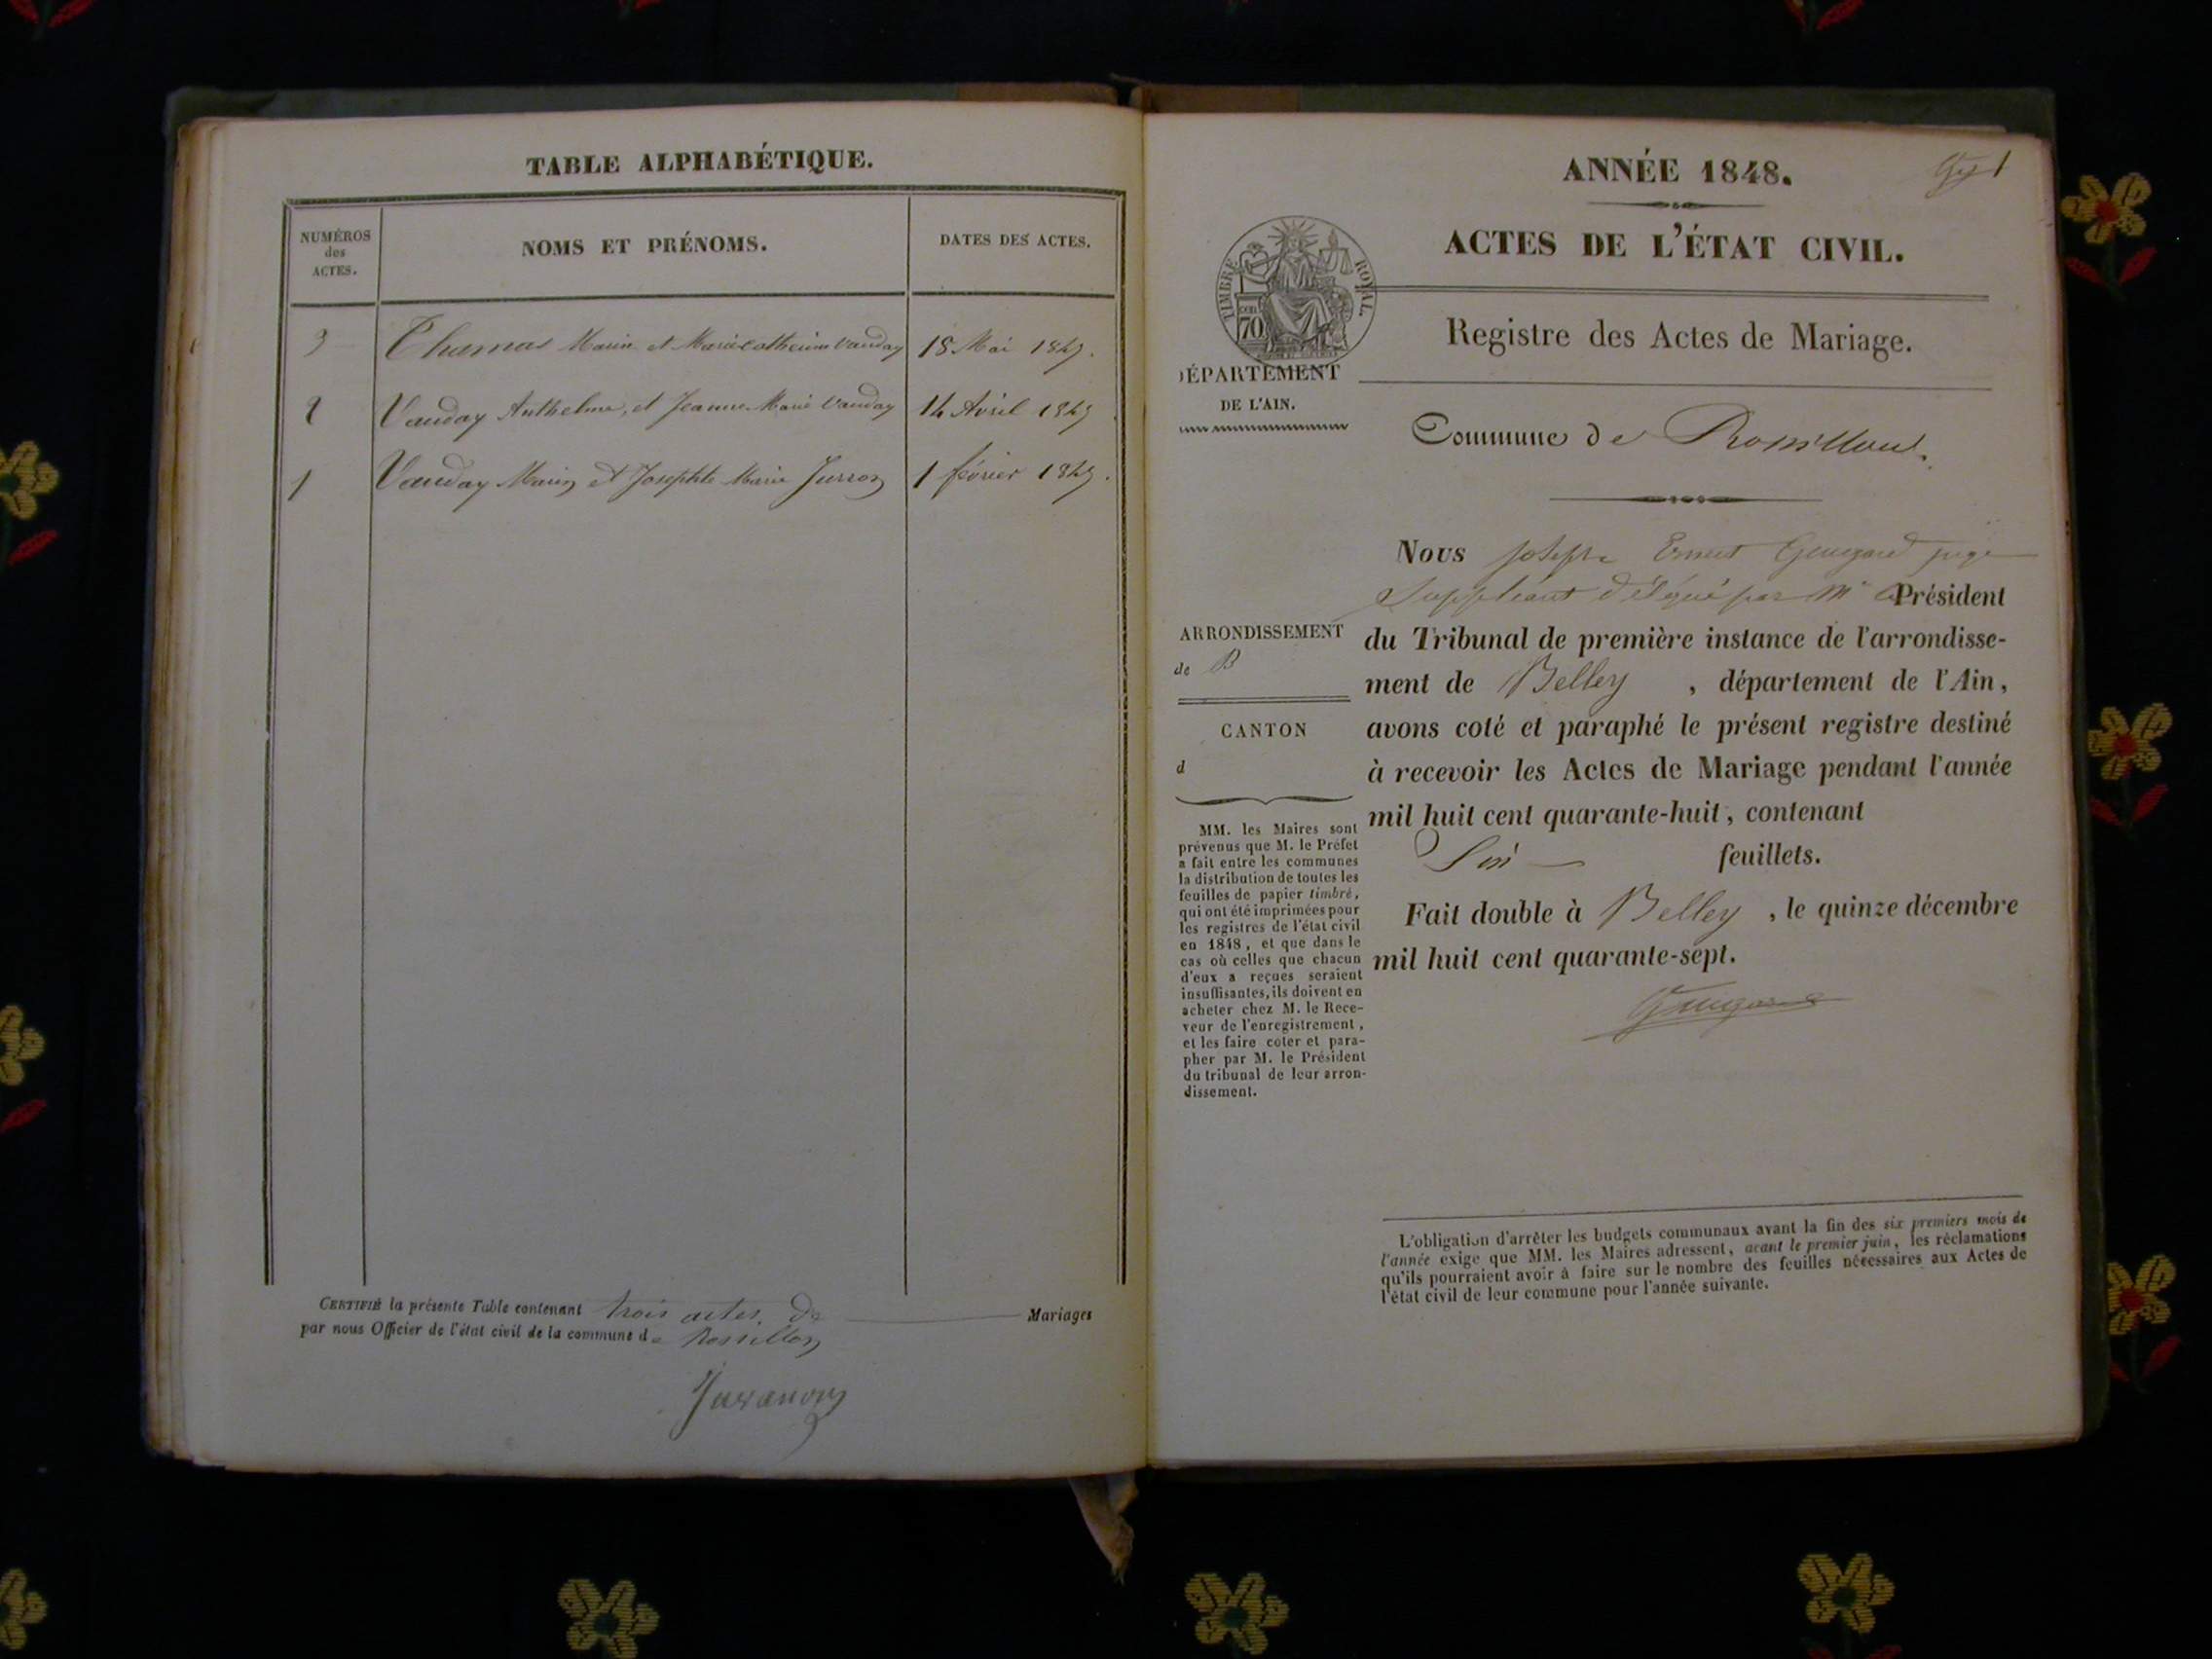 TABLE ALPHABÉTIQUE.
NUMÉROS
des
ACTES.
NOMS ET PRÉNOMS.
DATES DES ACTES.
3 Thomas Marin et Marie Vauday 18 Mai
2 Vauday Anthelme, et Jeanne Marie Vauday 14 Avril
1 Vauday Marin et Josephte Marie 1 février
CERTIFIÉ la présente Table contenant trois actes de Mariages
par nous Officier de l'état civil de la commune de Rossillon
ANNÉE 1848.
1
ACTES DE L'ÉTAT CIVIL.
TIMBRE ROYAL.
70
Registre des Actes de Mariage.
DÉPARTEMENT
DE L'AIN.
Commune de Rossillon.
Nous Joseph Ernest juge
Suppléant délégué par Mr le Président
du Tribunal de première instance de l'arrondisse-
ment de Belley , département de l'Ain,
avons coté et paraphé le présent registre destiné
à recevoir les Actes de Mariage pendant l'année
mil huit cent quarante-huit, contenant
Six feuillets.
Fait double à Belley , le quinze décembre
mil huit cent quarante-sept.
ARRONDISSEMENT
de B
CANTON
d
MM. les Maires sont
prévenus que M. le Préfet
a fait entre les communes
la distribution de toutes les
feuilles de papier timbré,
qui ont été imprimées pour
les registres de l'état civil
en 1848, et que dans le
cas où celles que chacun
d'eux a reçues seraient
insuffisantes, ils doivent en
acheter chez M. le Rece-
veur de l'enregistrement,
et les faire coter et para-
pher par M. le Président
du tribunal de leur arron-
dissement.
L'obligation d'arrêter les budgets communaux avant la fin des six premiers mois de
l'année exige que MM. les Maires adressent, avant le premier juin, les réclamations
qu'ils pourraient avoir à faire sur le nombre des feuilles nécessaires aux Actes de
l'état civil de leur commune pour l'année suivante.